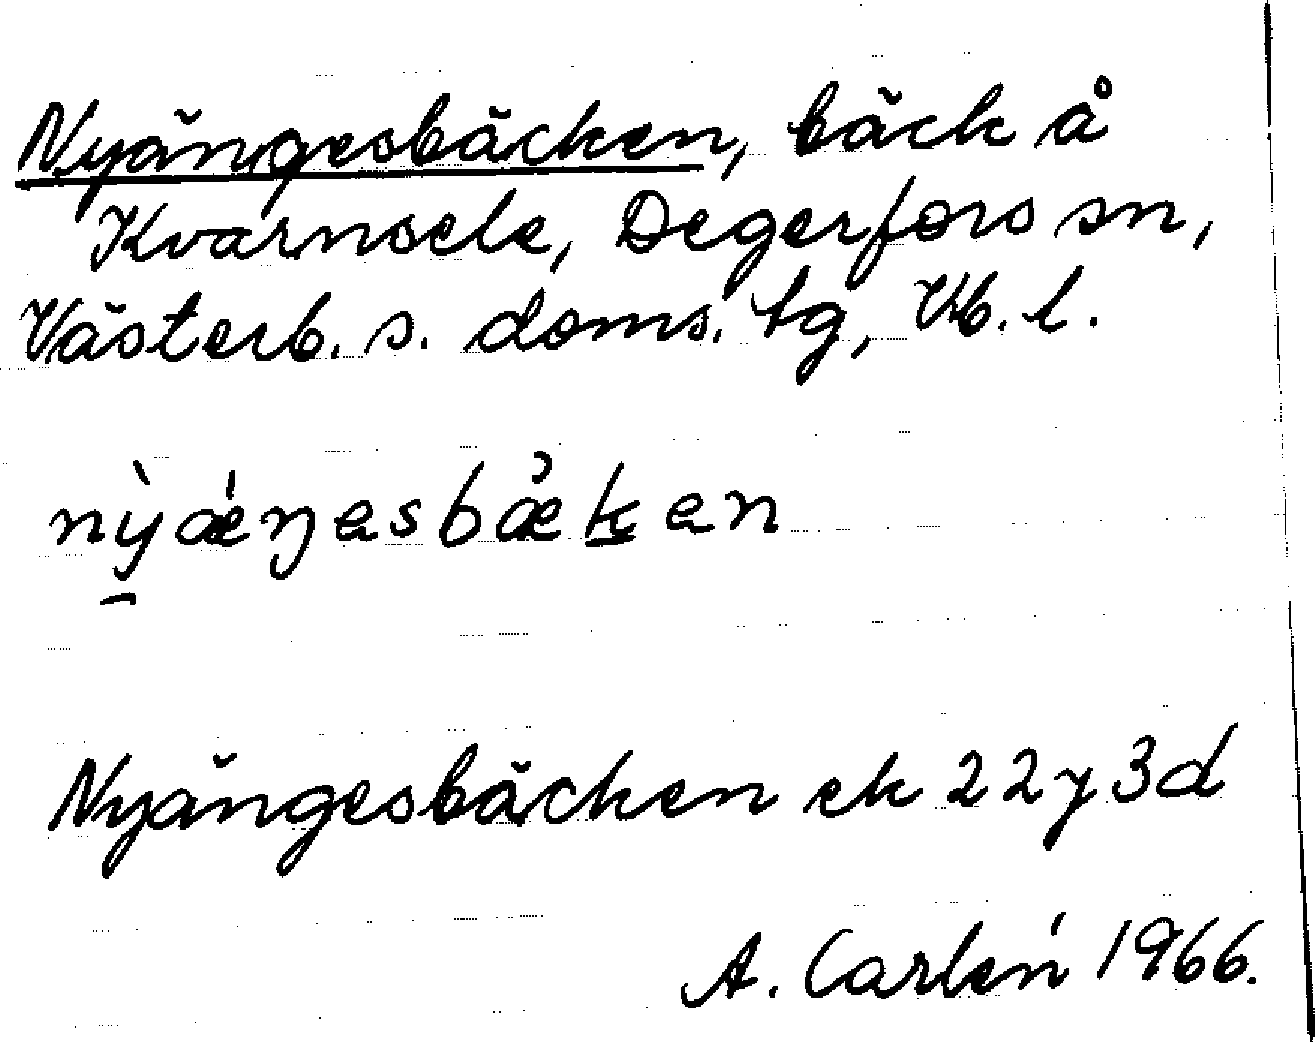 Nyängesbäcken, bäck å
Kvarnsele, Degerfors sn,
Västerb. s. doms. tg, Vb. l.
nỳǽŋesbæ̉ken
Nyängesbäcken ek 22 y 3d
A. Carlén 1966.